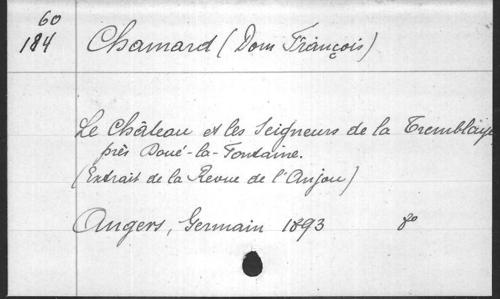 60
184
Chamard (Dom François)
Le Château et les Seigneurs de la Tremblaye
près Doué-la-Fontaine.
(Extrait de la Revue de l'Anjou)
Angers, Germain 1893 8º